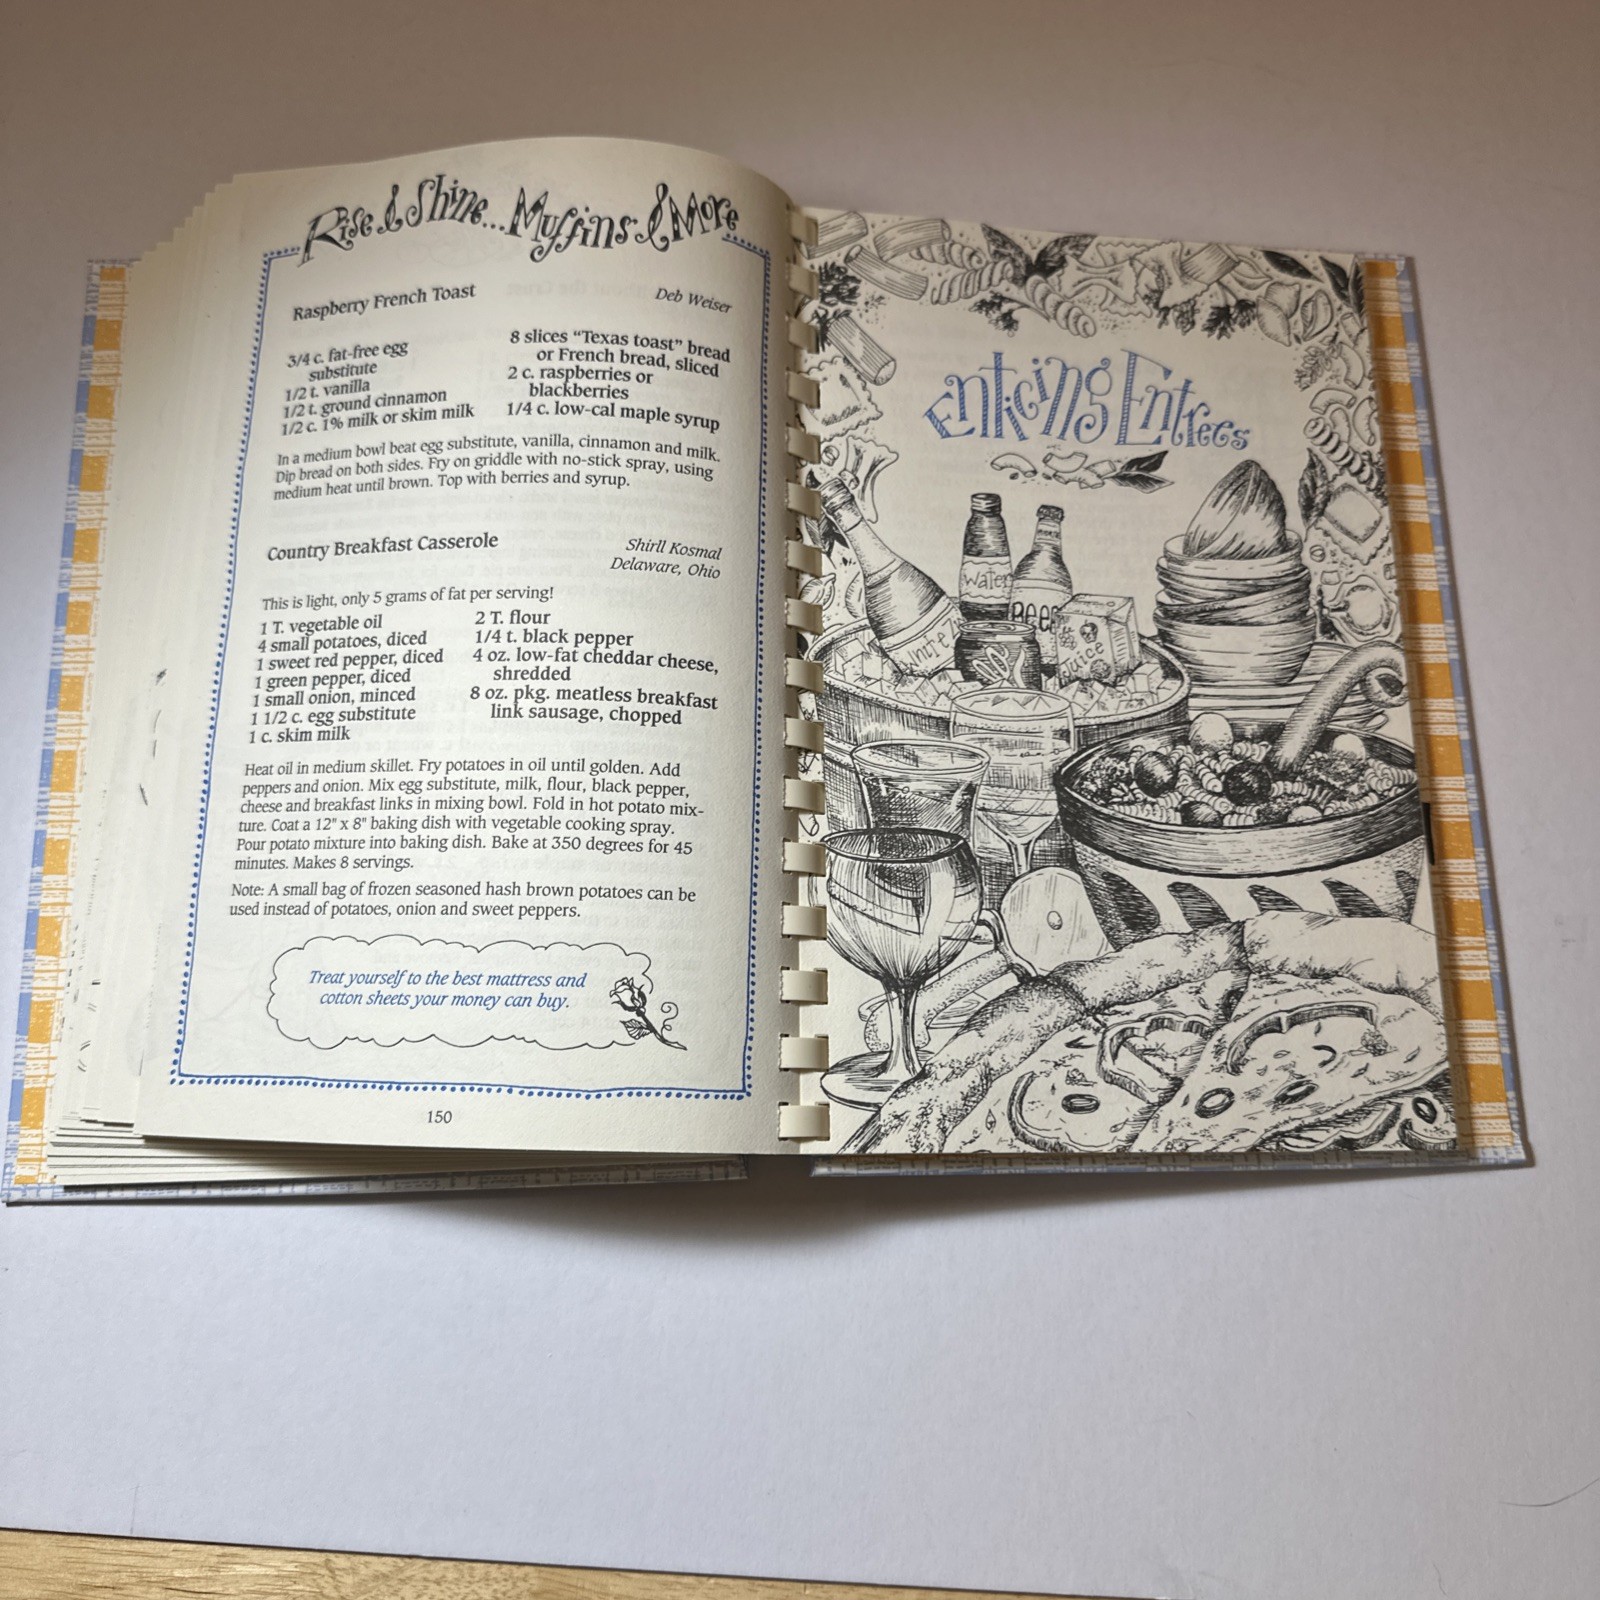 Rise & Shine...Muffins & More
Raspberry French Toast
Deb Weiser
3/4 c. fat-free egg
substitute
1/2 t. vanilla
1/2 t. ground cinnamon
1/2 c. 1% milk or skim milk
8 slices “Texas toast” bread
or French bread, sliced
2 c. raspberries or
blackberries
1/4 c. low-cal maple syrup
In a medium bowl beat egg substitute, vanilla, cinnamon and milk.
Dip bread on both sides. Fry on griddle with no-stick spray, using
medium heat until brown. Top with berries and syrup.
Country Breakfast Casserole
Shirll Kosmal
Delaware, Ohio
This is light, only 5 grams of fat per serving!
1 T. vegetable oil
4 small potatoes, diced
1 sweet red pepper, diced
1 green pepper, diced
1 small onion, minced
1 1/2 c. egg substitute
1 c. skim milk
2 T. flour
1/4 t. black pepper
4 oz. low-fat cheddar cheese,
shredded
8 oz. pkg. meatless breakfast
link sausage, chopped
Heat oil in medium skillet. Fry potatoes in oil until golden. Add
peppers and onion. Mix egg substitute, milk, flour, black pepper,
cheese and breakfast links in mixing bowl. Fold in hot potato mix-
ture. Coat a 12" x 8" baking dish with vegetable cooking spray.
Pour potato mixture into baking dish. Bake at 350 degrees for 45
minutes. Makes 8 servings.
Note: A small bag of frozen seasoned hash brown potatoes can be
used instead of potatoes, onion and sweet peppers.
Treat yourself to the best mattress and
cotton sheets your money can buy.
150
Enticing Entrees
Water
Beer
White
Juice